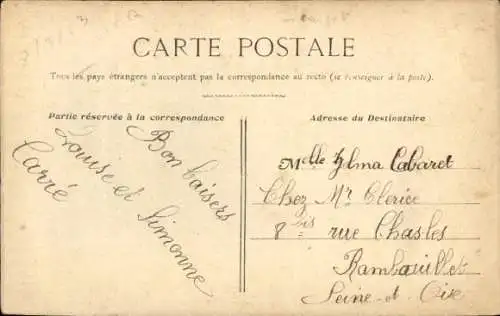 CARTE POSTALE
Tous les pays étrangers n'acceptent pas la correspondance au recto (se renseigner à la poste).
Partie réservée à la correspondance
Bon baisers
Louise et Simonne
Carré
Adresse du Destinataire
Melle Zelma Cabaret
Chez Mr Clerice
8 bis rue Chasles
Rambouillet
Seine-et-Oise